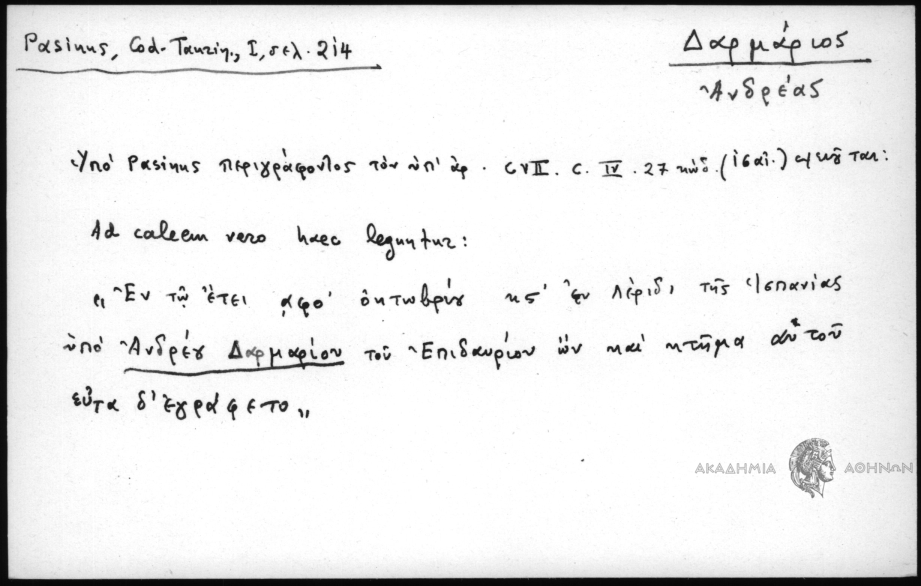 Pasinus, Cod. Taurin., I, σελ. 214
Δαρμάριος
Ἀνδρέας
Ὑπό Pasinus περιγράφοντος τὸν ὑπ' ἀρ. CVII. C. IV. 27 κώδ.
Ad calcem vero haec leguntur:
"Ἐν τῷ ἔτει ͵αφο' ὀκτωβρίῳ κς' ἐν Λέριδι τῆς Ἱσπανίας
ὑπό Ἀνδρέου Δαρμαρίου τοῦ Ἐπιδαυρίου ὧν καί κτῆμα αὐτοῦ
εὖτα δ' ἐγράφετο"
ΑΚΑΔΗΜΙΑ ΑΘΗΝΩΝ